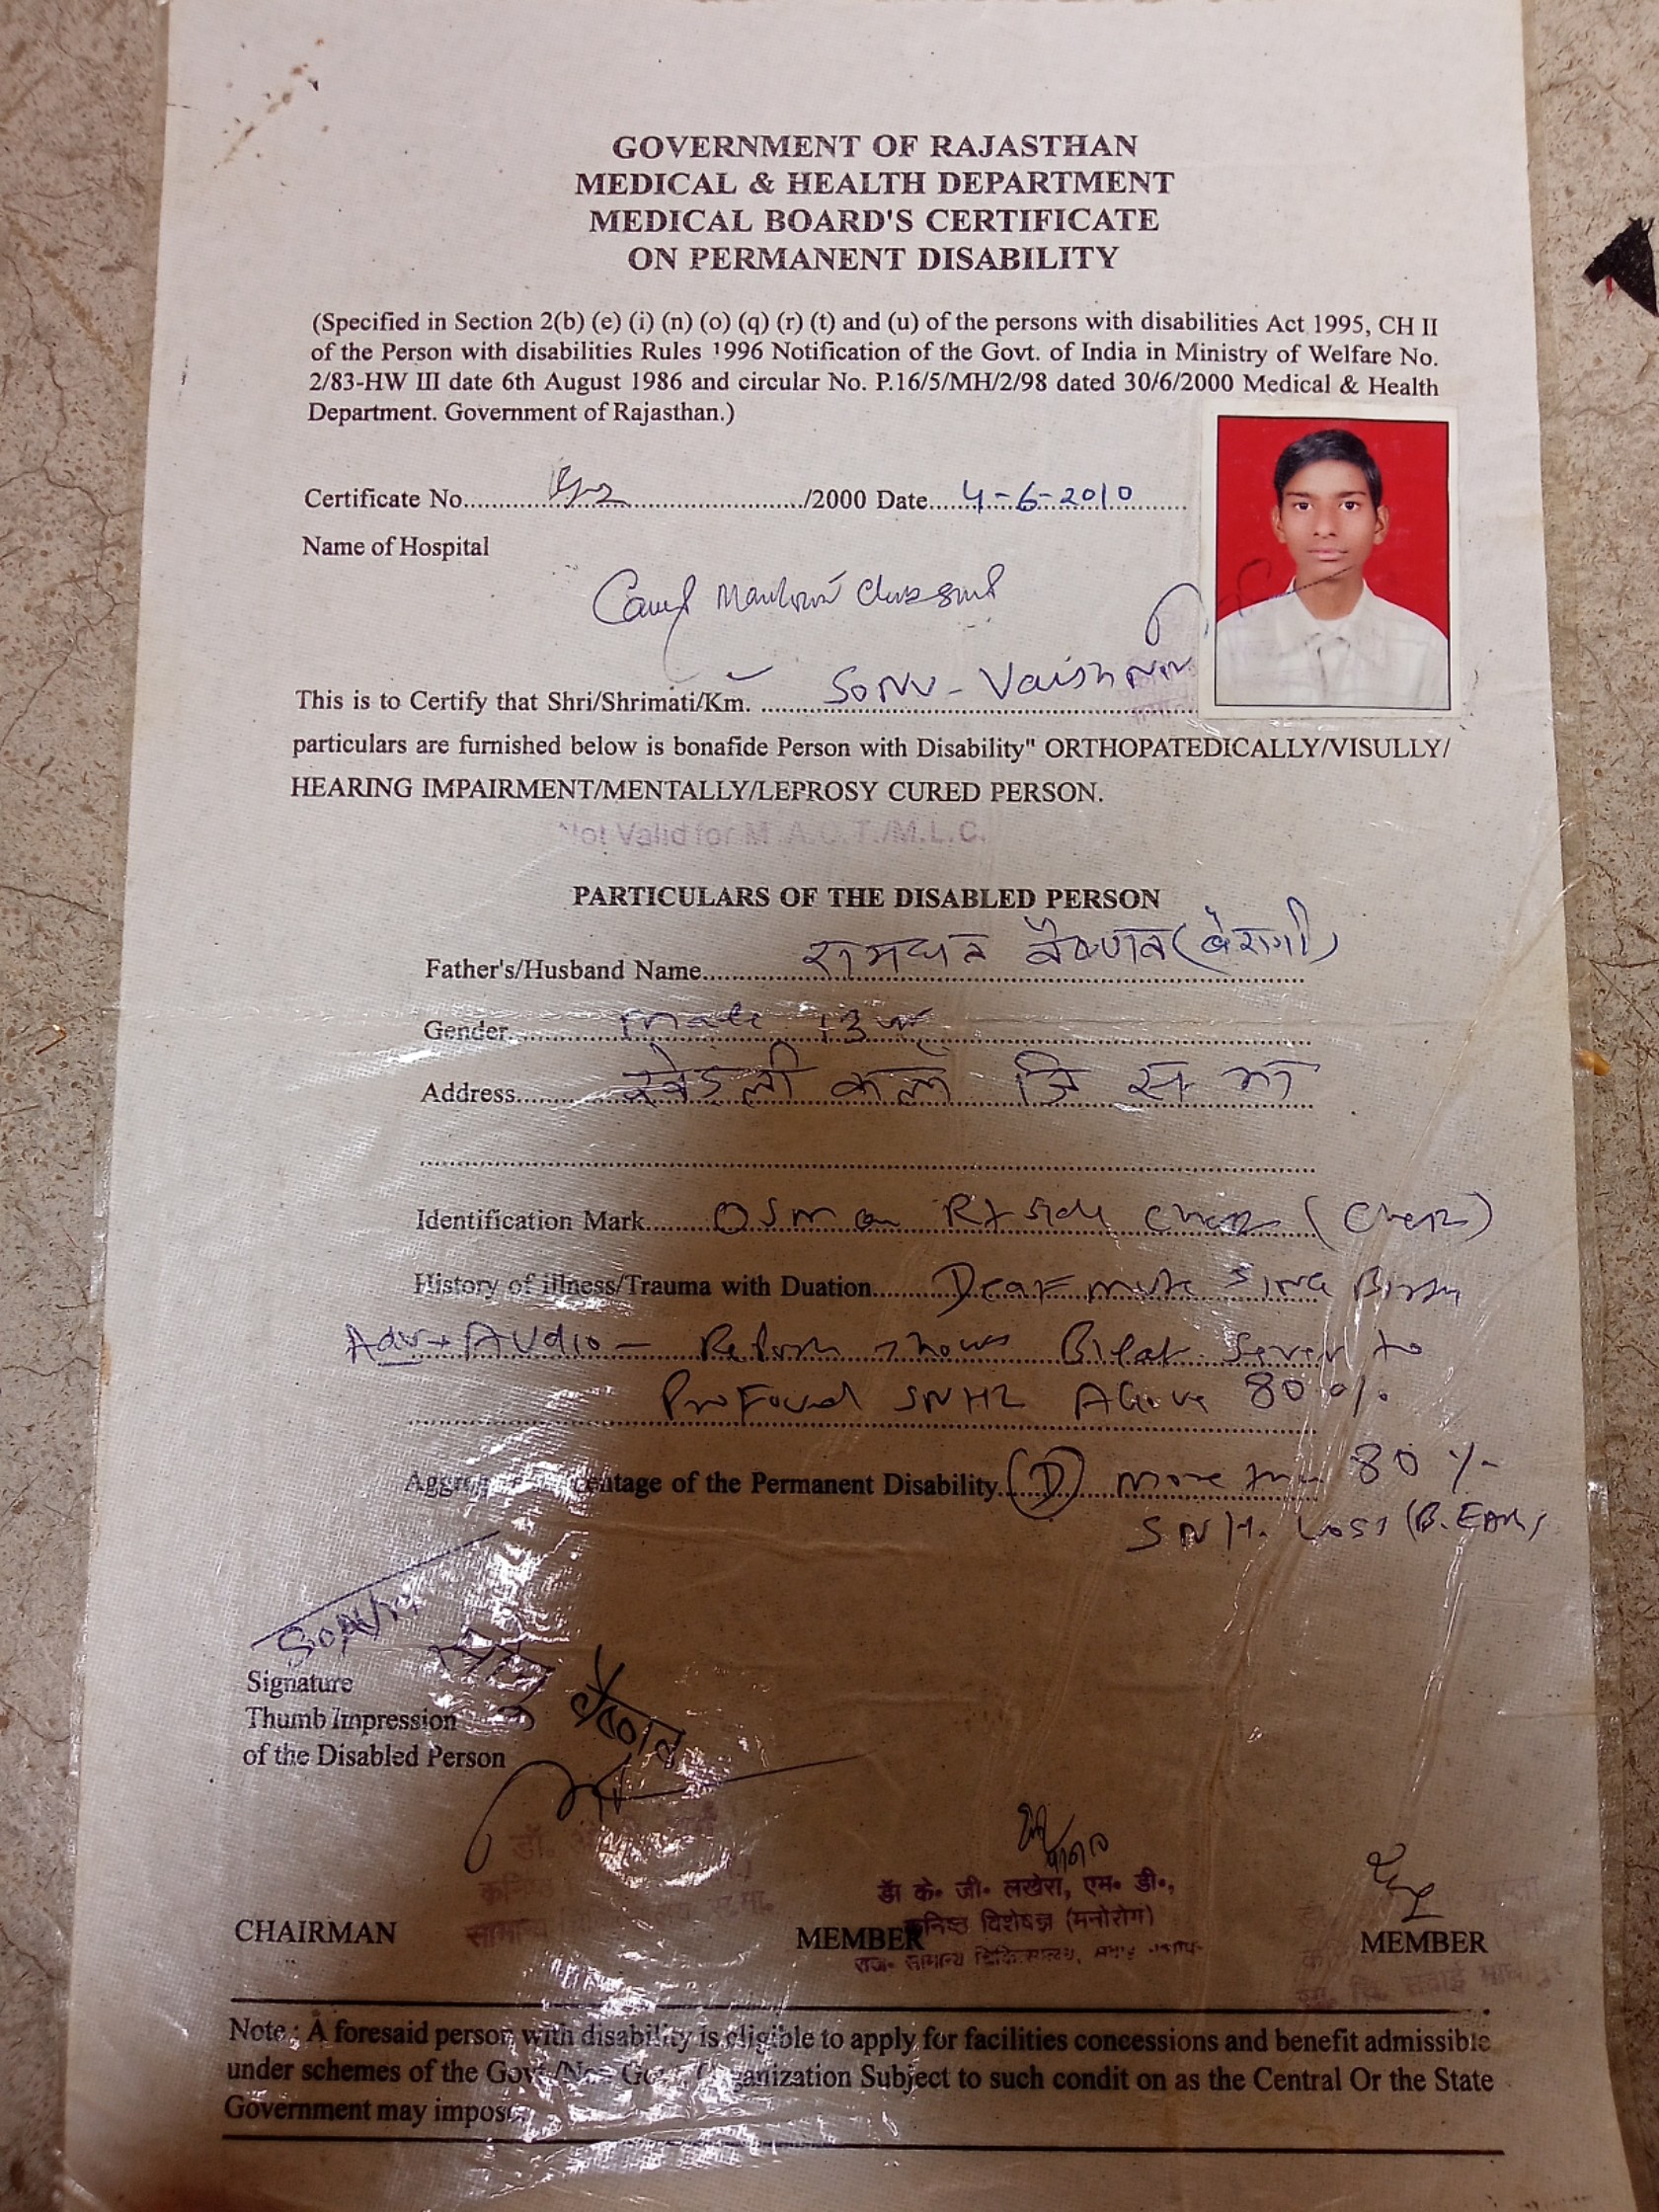 GOVERNMENT OF RAJASTHAN
MEDICAL & HEALTH DEPARTMENT
MEDICAL BOARD'S CERTIFICATE
ON PERMANENT DISABILITY
(Specified in Section 2(b) (e) (i) (n) (o) (q) (r) (t) and (u) of the persons with disabilities Act 1995, CH II
of the Person with disabilities Rules 1996 Notification of the Govt. of India in Ministry of Welfare No.
2/83-HW III date 6th August 1986 and circular No. P.16/5/MH/2/98 dated 30/6/2000 Medical & Health
Department. Government of Rajasthan.)
Certificate No. /2000 Date 4-6-2010
Name of Hospital
This is to Certify that Shri/Shrimati/Km. Sonu - Vaishnav
particulars are furnished below is bonafide Person with Disability" ORTHOPATEDICALLY/VISULLY/
HEARING IMPAIRMENT/MENTALLY/LEPROSY CURED PERSON.
Not Valid for M.A.C.T./M.L.C.
PARTICULARS OF THE DISABLED PERSON
Father's/Husband Name रामधन वैष्णव (बैरागी)
Gender male 13
Address जि स मा
Identification Mark on Rt side
History of illness/Trauma with Duation Deaf mute Since Birth
Adv Audio - Report shows Bilat. Sever to
Profound SNHL Above 80%
Aggregate Percentage of the Permanent Disability (D) more than 80%
SNH. Loss (B. Ears)
Sonu
Signature
सोनु वैष्णव
Thumb Impression
of the Disabled Person
डॉ के॰ जी॰ लखेरा, एम॰ डी॰,
कनिष्ठ विशेषज्ञ (मनोरोग)
CHAIRMAN MEMBER MEMBER
राज॰ सामान्य चिकित्सालय,
Note : A foresaid person with disability is eligible to apply for facilities concessions and benefit admissible
under schemes of the Govt./Non Govt. Organization Subject to such condit on as the Central Or the State
Government may impose.